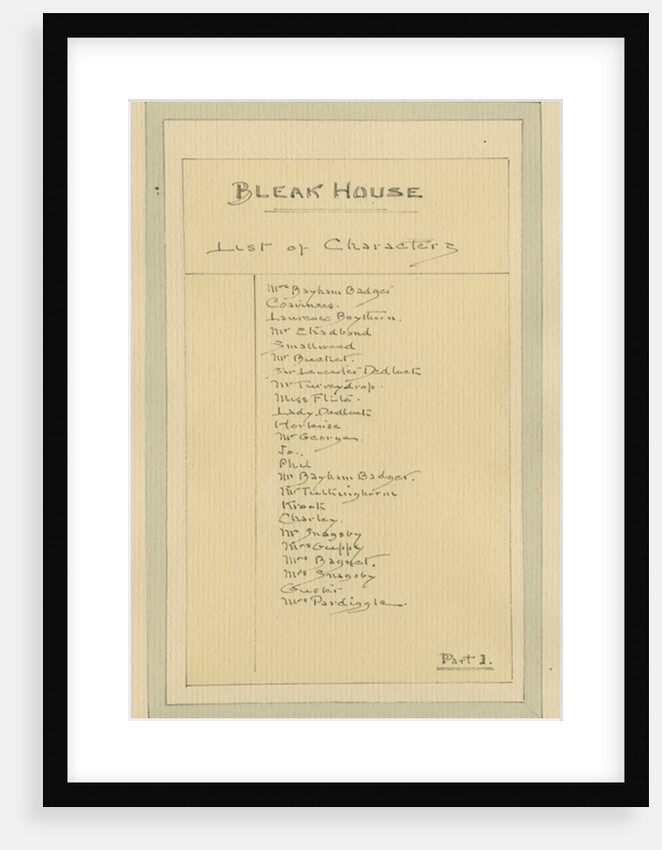 BLEAK HOUSE
List of Characters
Mrs Bayham Badger
Coavinses.
Lawrence Boythorn.
Mr Chadband
Smallweed
Mr Bucket.
Sir Leicester Dedlock
Mr Turveydrop.
Miss Flite.
Lady Dedlock
Hortense
Mr George.
Jo.
Phil
Mr Bayham Badger.
Mr Tulkinghorne
Krook
Charley.
Mr Snagsby
Mrs Guppy
Mrs Bagnet.
Mrs Snagsby
Guster
Mrs Pardiggle.
Part 1.